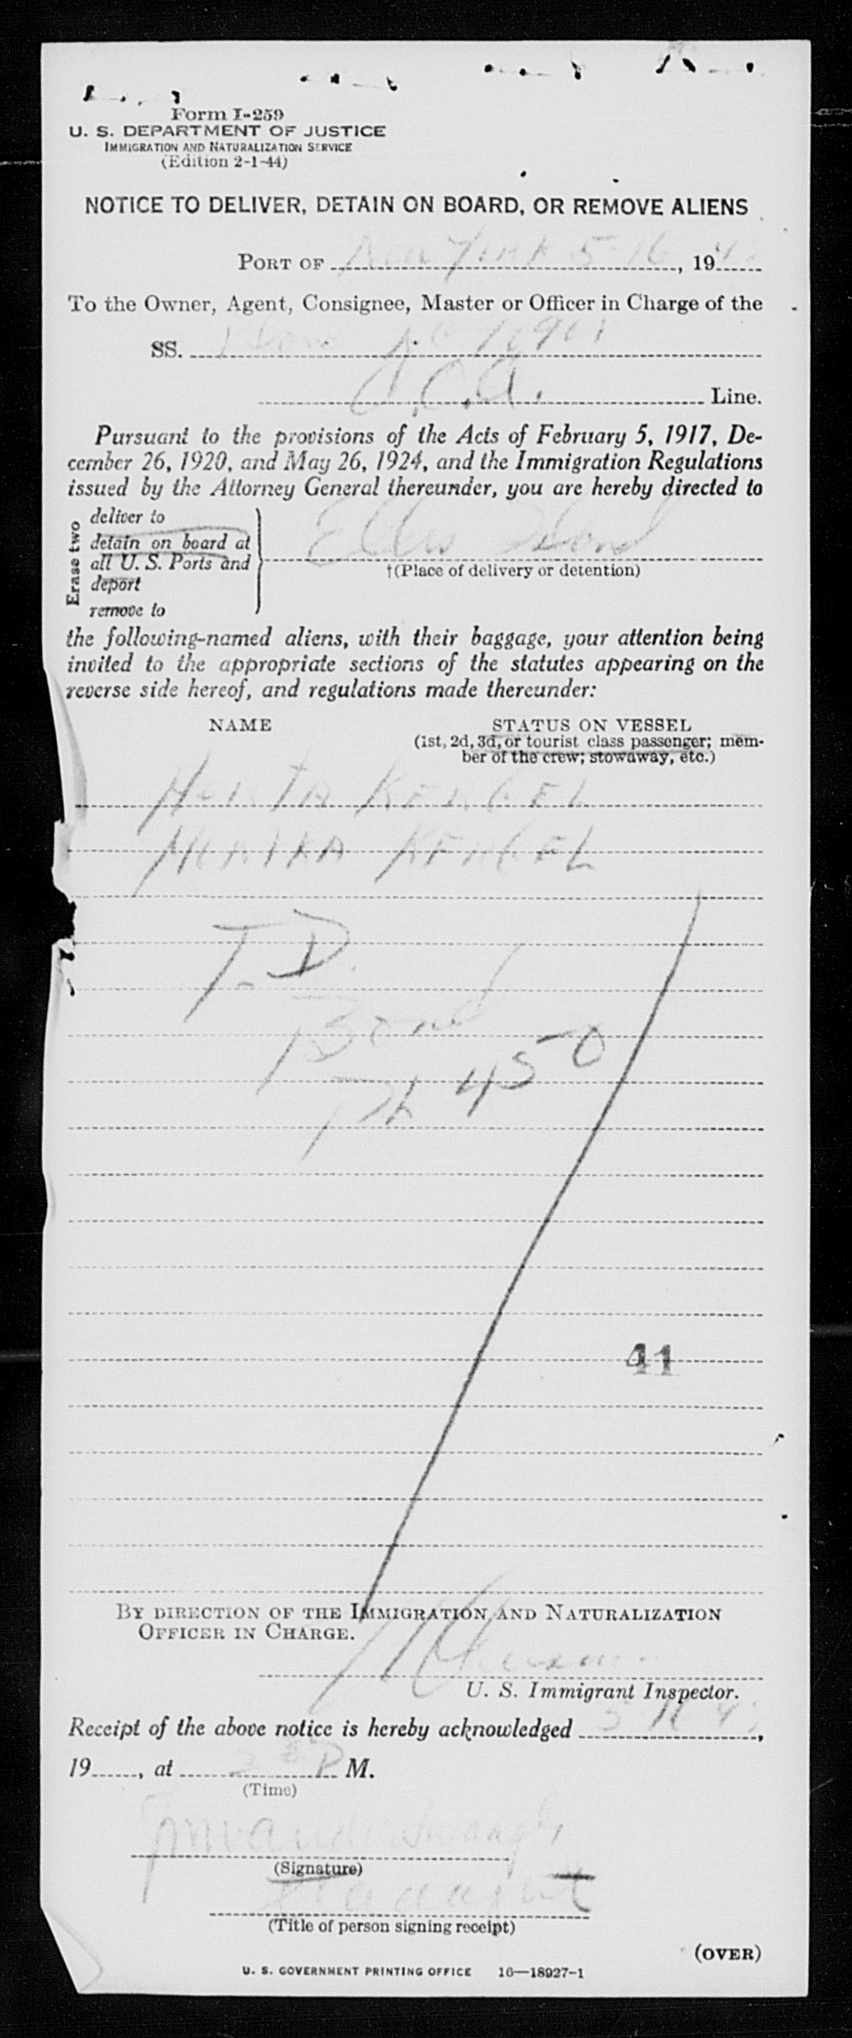 Form I-259
U. S. DEPARTMENT OF JUSTICE
IMMIGRATION AND NATURALIZATION SERVICE
(Edition 2-1-44)
NOTICE TO DELIVER, DETAIN ON BOARD, OR REMOVE ALIENS
PORT OF New York 5-16, 194
To the Owner, Agent, Consignee, Master or Officer in Charge of the
SS.
A.O.A. Line.
Pursuant to the provisions of the Acts of February 5, 1917, De-
cember 26, 1920, and May 26, 1924, and the Immigration Regulations
issued by the Attorney General thereunder, you are hereby directed to
Erase two
deliver to
detain on board at
all U. S. Ports and
deport
remove to
Ellis Island
†(Place of delivery or detention)
the following-named aliens, with their baggage, your attention being
invited to the appropriate sections of the statutes appearing on the
reverse side hereof, and regulations made thereunder:
NAME STATUS ON VESSEL
(1st, 2d, 3d, or tourist class passenger; mem-
ber of the crew; stowaway, etc.)
KENGEL
MONIKA KENGEL
T.D.
Bond
450
41
BY DIRECTION OF THE IMMIGRATION AND NATURALIZATION
OFFICER IN CHARGE.
U. S. Immigrant Inspector.
Receipt of the above notice is hereby acknowledged
19, at P M.
(Time)
(Signature)
(Title of person signing receipt)
(OVER)
U. S. GOVERNMENT PRINTING OFFICE 16—18927-1